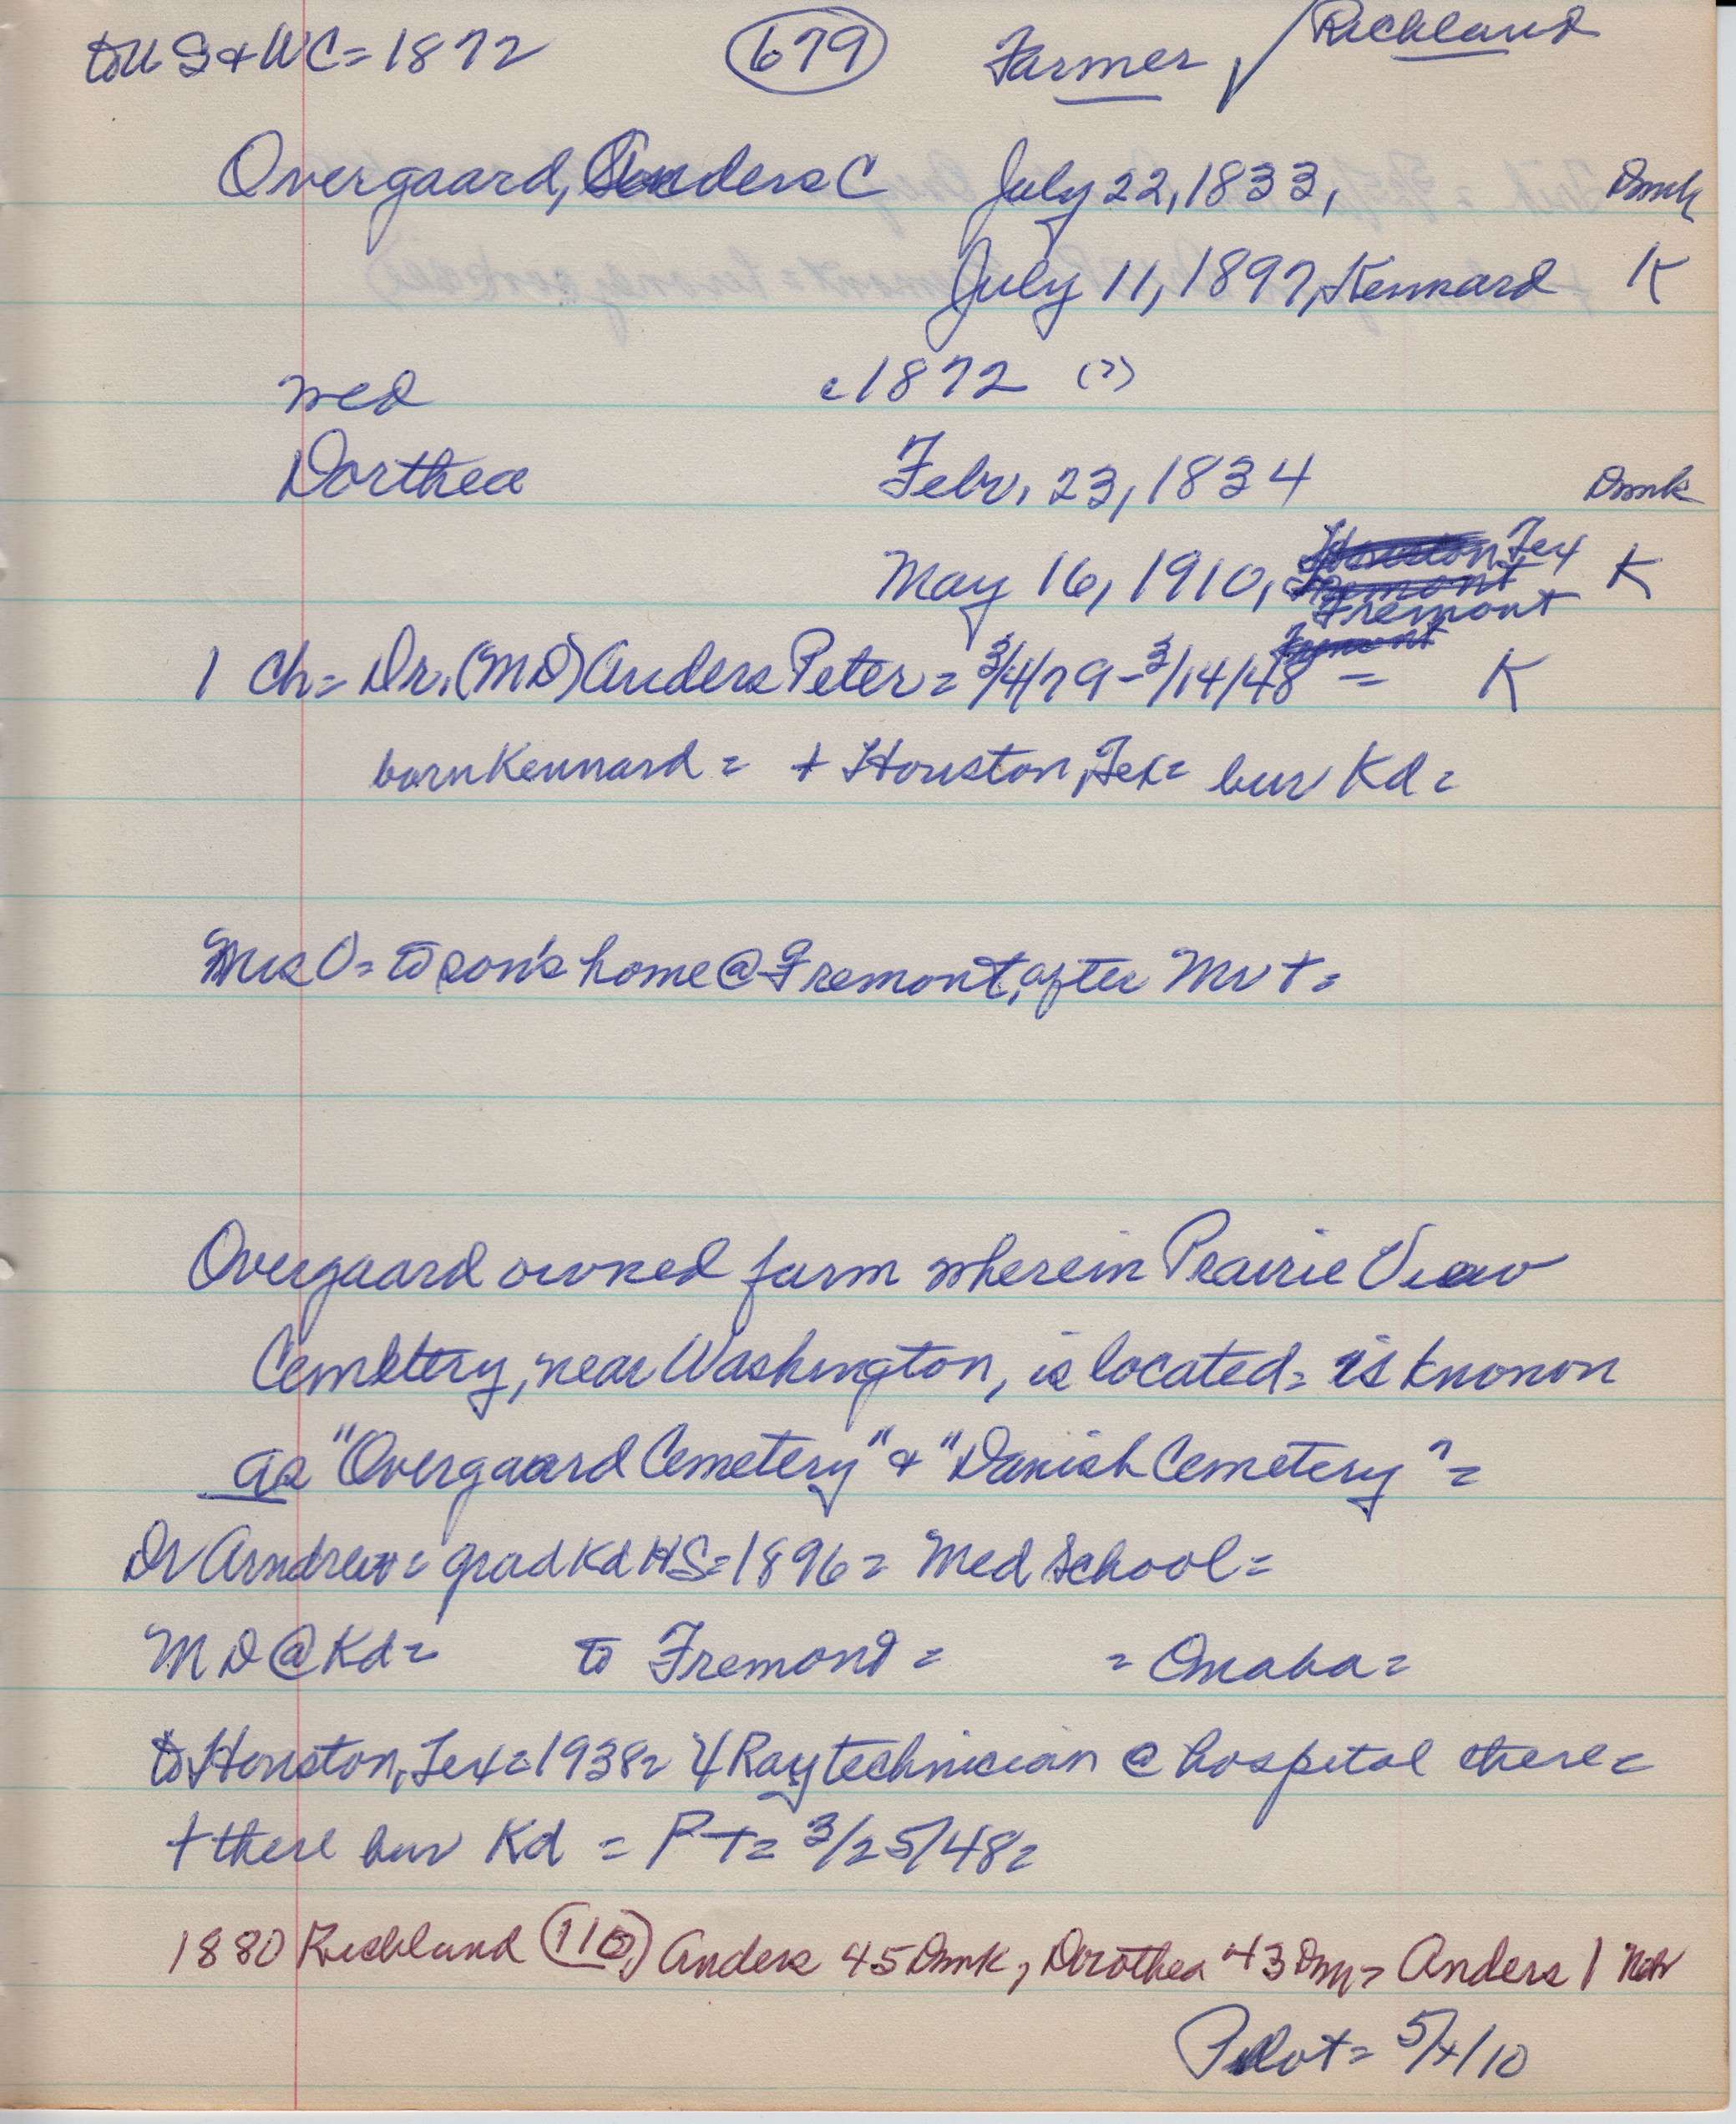 to US & WC = 1872 679 Farmer √ Richland
Overgaard, Anders C July 22, 1833, Dmk
July 11, 1897, Kennard K
wed c1872 (?)
Dorthea Febr. 23, 1834 Dmk
May 16, 1910, Houston Tex K
Fremont
Fremont
Fremont
1 ch = Dr. (MD) Anders Peter = 3/4/79 - 3/14/48 = K
born Kennard = + Houston, Tex = bur Kd =
Mrs O = to son's home @ Fremont, after Mr + =
Overgaard owned farm wherein Prairie View
Cemetery, near Washington, is located = is known
as "Overgaard Cemetery" & "Danish Cemetery" =
Dr Arndrew = grad Kd HS = 1896 = Med School =
MD @ Kd = to Fremont = = Omaha =
to Houston, Tex = 1938 = X Ray technician @ hospital there =
+ there bur Kd = PT = 3/25/48 =
1880 Richland 110) Anders 45 Dmk, Dorothea 43 Dm = Anders 1 Nebr
Pilot =